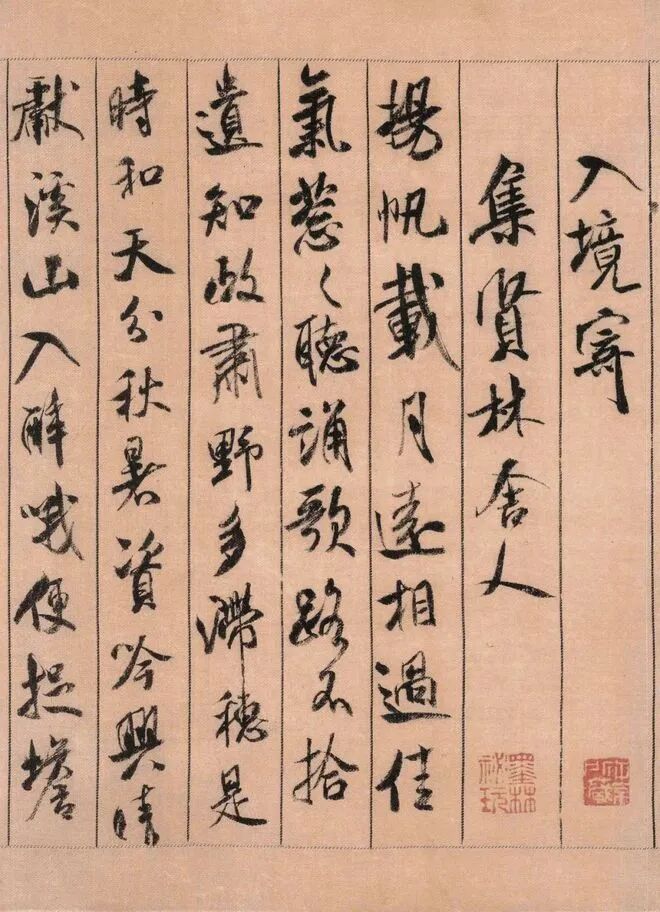 入境寄
集賢林舍人
揚帆載月遠相過佳
氣葱〻聽誦歌路不拾
遺知政肅野多滯穗是
時和天分秋暑資吟興晴
獻溪山入醉哦便捉蟾
墨林
祕玩